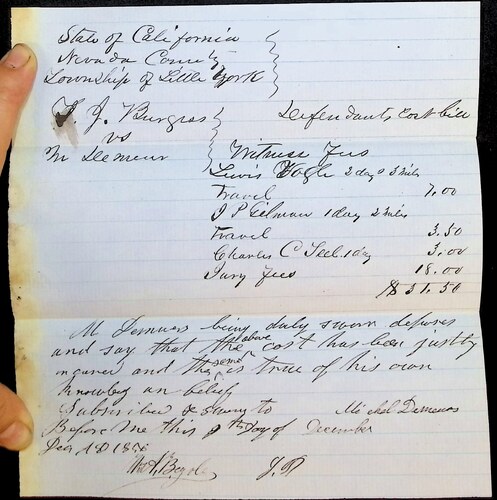 State of California
Nevada County
Township of Little York
T. J. Burgess
Defendants Cost bill
vs
M Demeur
Witness Fees
Lewis Hogle 2 days 3 miles
Travel 7.00
J P Gilman 1 day 2 miles
Travel 3.50
Charles C Teel. 1 day 3.00
Jury Fees 18.00
$ 31.50
M Demeurs being duly sworn deposes
and say that the above cost has been justly
and the same is true of his own
knowledg an belief
Subscribed & sworn to Michel Demeurs
Before me this 9th Day of December
A D
J. P